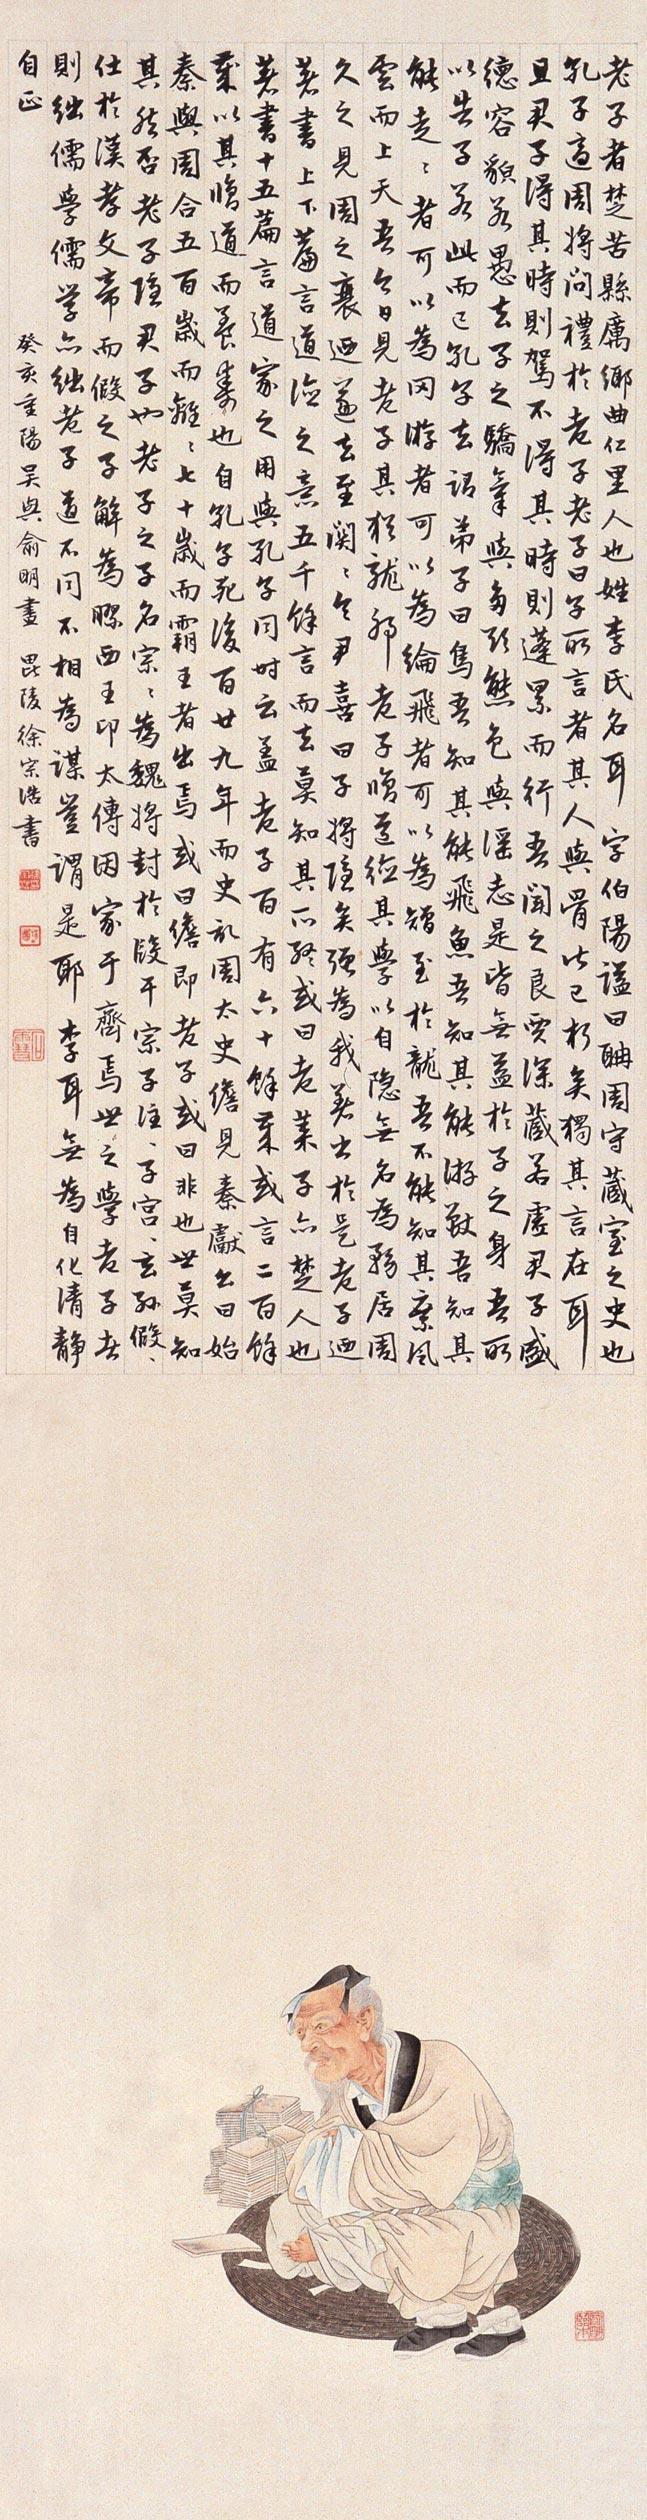 老子者楚苦縣厲鄉曲仁里人也姓李氏名耳字伯陽謚曰聃周守藏室之史也
孔子適周將問禮於老子老子曰子所言者其人與骨皆已朽矣獨其言在耳
且君子得其時則駕不得其時則蓬累而行吾聞之良賈深藏若虛君子盛
德容貌若愚去子之驕氣與多欲態色與淫志是皆無益於子之身吾所
以告子若此而已孔子去謂弟子曰鳥吾知其能飛魚吾知其能游獸吾知其
能走〻者可以為罔游者可以為綸飛者可以為矰至於龍吾不能知其乘風
雲而上天吾今日見老子其猶龍邪老子脩道德其學以自隱無名為務居周
久之見周之衰迺遂去至關〻令尹喜曰子將隱矣强為我著書於是老子迺
著書上下篇言道德之意五千餘言而去莫知其所終或曰老萊子亦楚人也
著書十五篇言道家之用與孔子同時云蓋老子百有六十餘歲或言二百餘
歲以其脩道而養壽也自孔子死後百廿九年而史記周太史儋見秦獻公曰始
秦與周合五百歲而離〻七十歲而霸王者出焉或曰儋即老子或曰非也世莫知
其然否老子隱君子也老子之子名宗〻為魏將封於段干宗子注〻子宮〻玄孫假〻
仕於漢孝文帝而假之子解為膠西王卬太傅因家于齊焉世之學老子者
則絀儒學儒學亦絀老子道不同不相為謀豈謂是耶李耳無為自化清静
自正
癸亥重陽吳興俞明畫 毘陵徐宗浩書